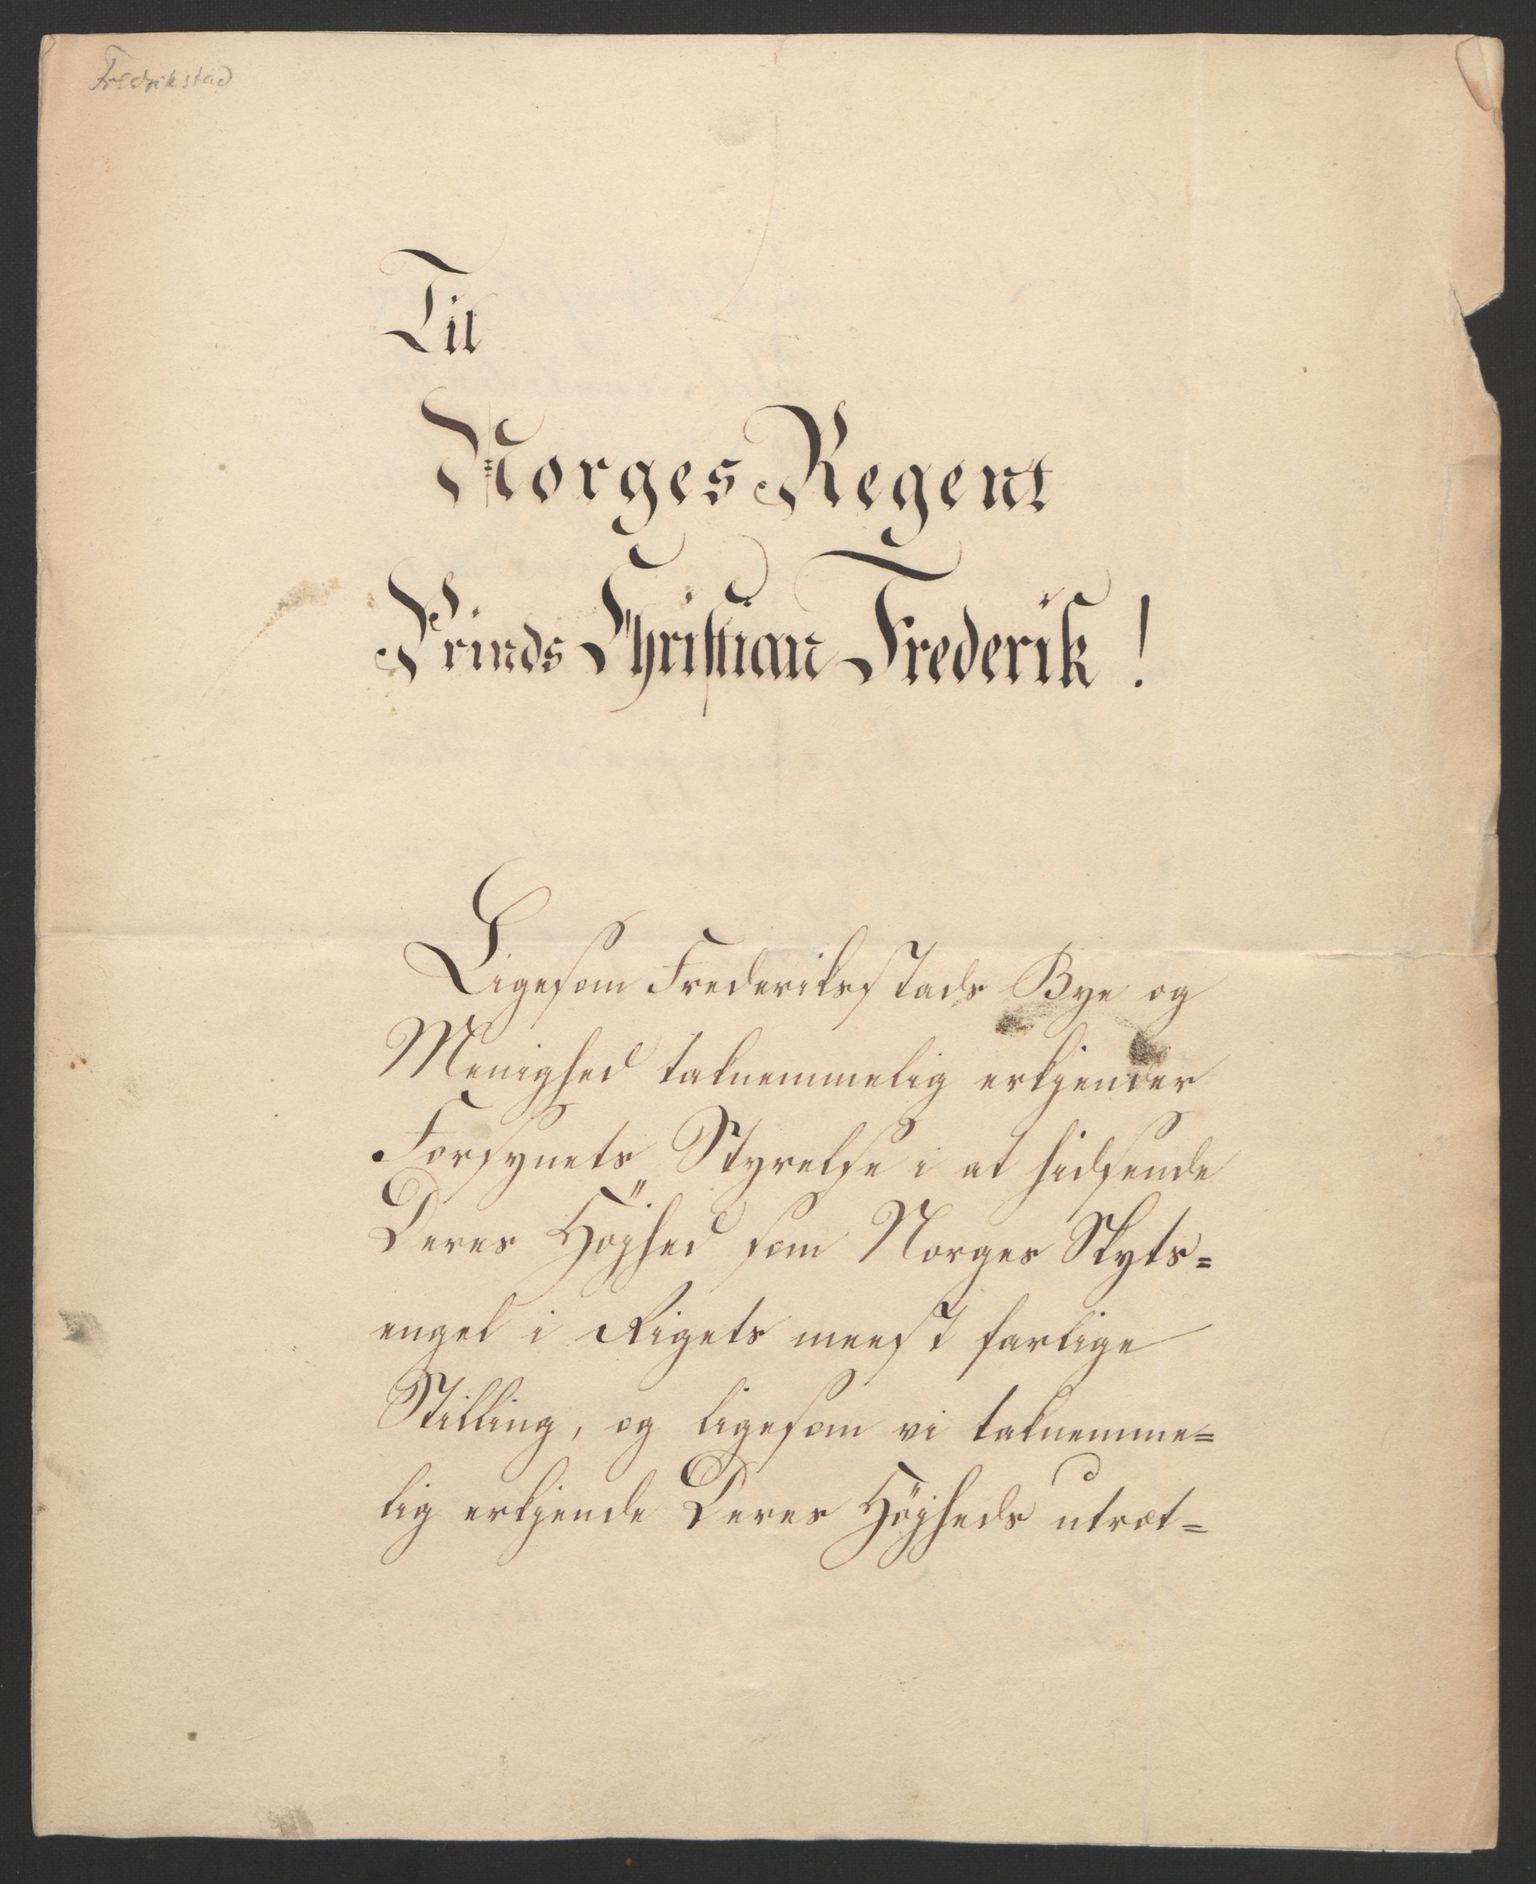 Fredrikstad
Til
Norges Regent
Prinds Christian Frederik!
Ligesom Frederiksstads Bye og
Menighed taknemmelig erkjender
Forsynets Styrelse i at hidsende
Deres Höjhed som Norges Skyts=
engel i Rigets meest farlige
Stilling, og ligesom vi taknemme=
lig erkjende Deres Höjheds utræt=